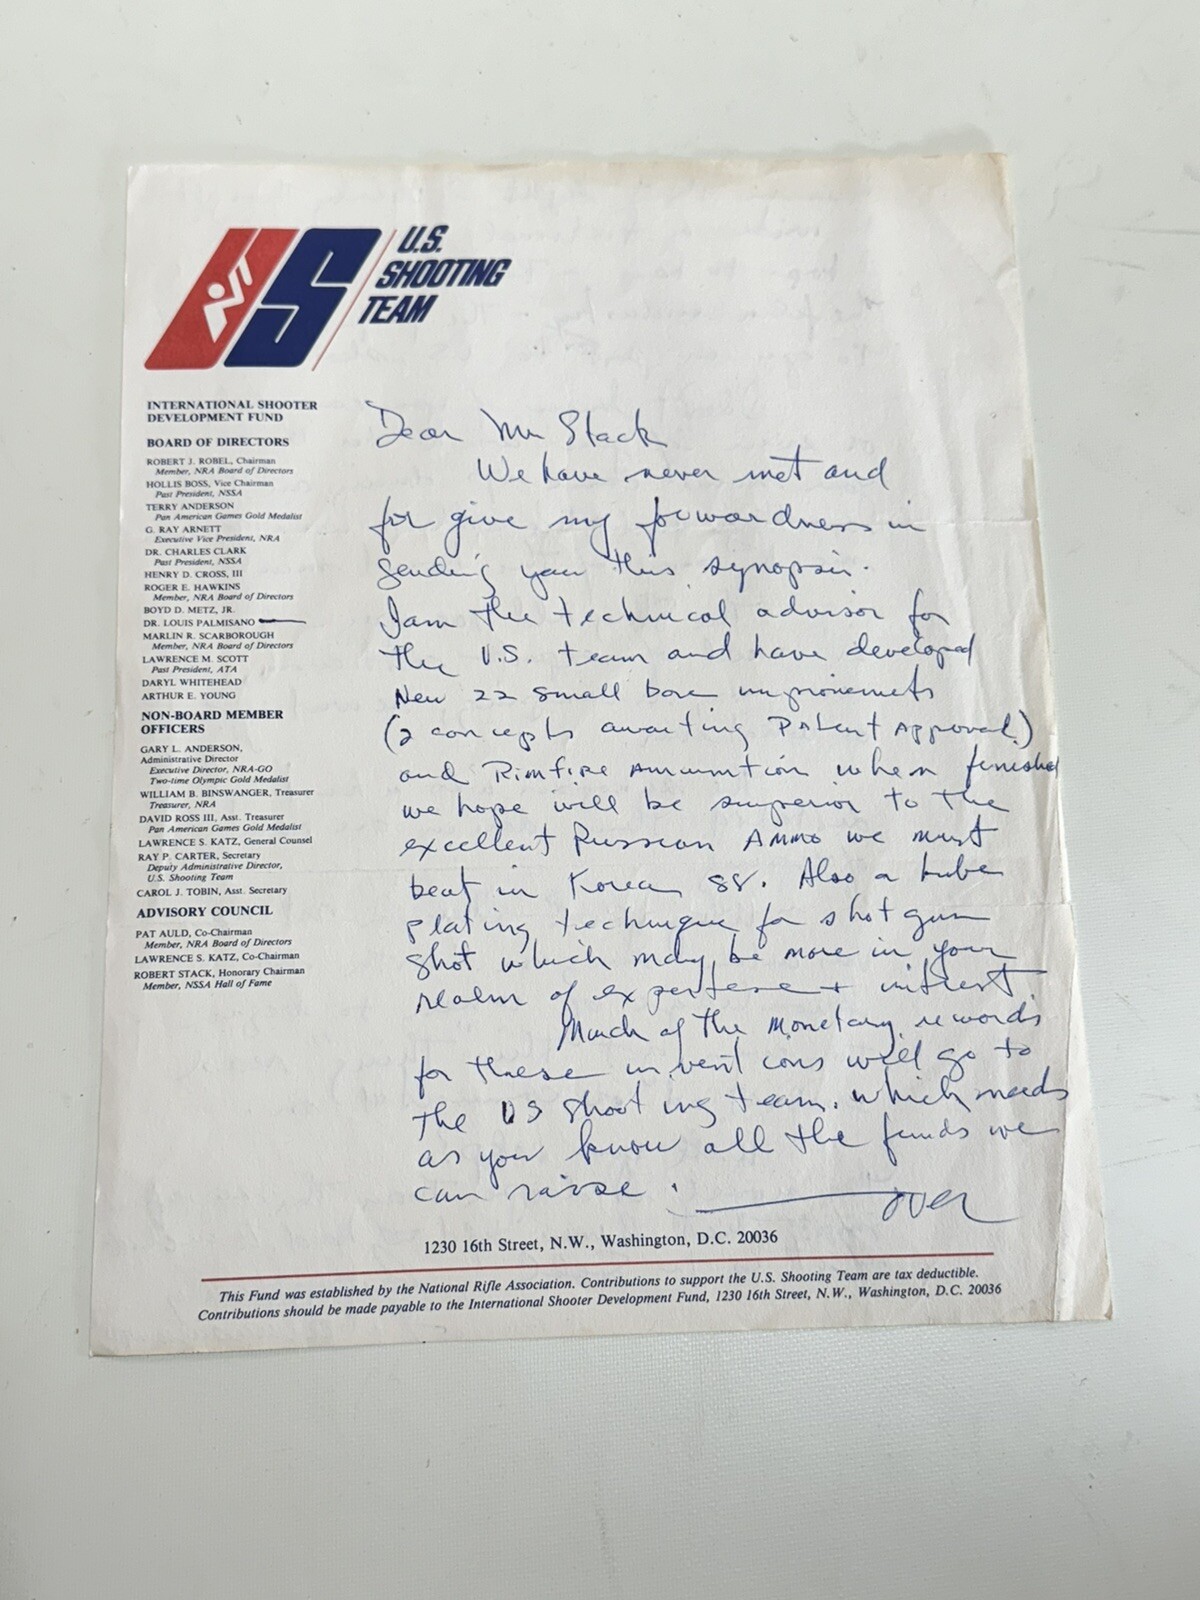 U.S.
SHOOTING
TEAM
INTERNATIONAL SHOOTER
DEVELOPMENT FUND
BOARD OF DIRECTORS
ROBERT J. ROBEL, Chairman
Member, NRA Board of Directors
HOLLIS BOSS, Vice Chairman
Past President, NSSA
TERRY ANDERSON
Pan American Games Gold Medalist
G. RAY ARNETT
Executive Vice President, NRA
DR. CHARLES CLARK
Past President, NSSA
HENRY D. CROSS, III
ROGER E. HAWKINS
Member, NRA Board of Directors
BOYD D. METZ, JR.
DR. LOUIS PALMISANO
MARLIN R. SCARBOROUGH
Member, NRA Board of Directors
LAWRENCE M. SCOTT
Past President, ATA
DARYL WHITEHEAD
ARTHUR E. YOUNG
NON-BOARD MEMBER
OFFICERS
GARY L. ANDERSON,
Administrative Director
Executive Director, NRA-GO
Two-time Olympic Gold Medalist
WILLIAM B. BINSWANGER, Treasurer
Treasurer, NRA
DAVID ROSS III, Asst. Treasurer
Pan American Games Gold Medalist
LAWRENCE S. KATZ, General Counsel
RAY P. CARTER, Secretary
Deputy Administrative Director,
U.S. Shooting Team
CAROL J. TOBIN, Asst. Secretary
ADVISORY COUNCIL
PAT AULD, Co-Chairman
Member, NRA Board of Directors
LAWRENCE S. KATZ, Co-Chairman
ROBERT STACK, Honorary Chairman
Member, NSSA Hall of Fame
Dear Mr Stack
We have never met and
for give my forwardness in
sending you this synopsis.
I am the technical advisor for
the U.S. team and have developed
New 22 small bore improvements
(2 concepts awaiting Patent Approval)
and Rimfire Ammunition when finished
we hope will be superior to the
excellent Russian Ammo we must
beat in Korea 88. Also a
plating technique for shotgun
shot which may be more in your
realm of expertese + intrest.
Much of the monetary rewards
for these inventions will go to
the US Shooting team. which needs
as you know all the funds we
can raise. over
1230 16th Street, N.W., Washington, D.C. 20036
This Fund was established by the National Rifle Association. Contributions to support the U.S. Shooting Team are tax deductible.
Contributions should be made payable to the International Shooter Development Fund, 1230 16th Street, N.W., Washington, D.C. 20036